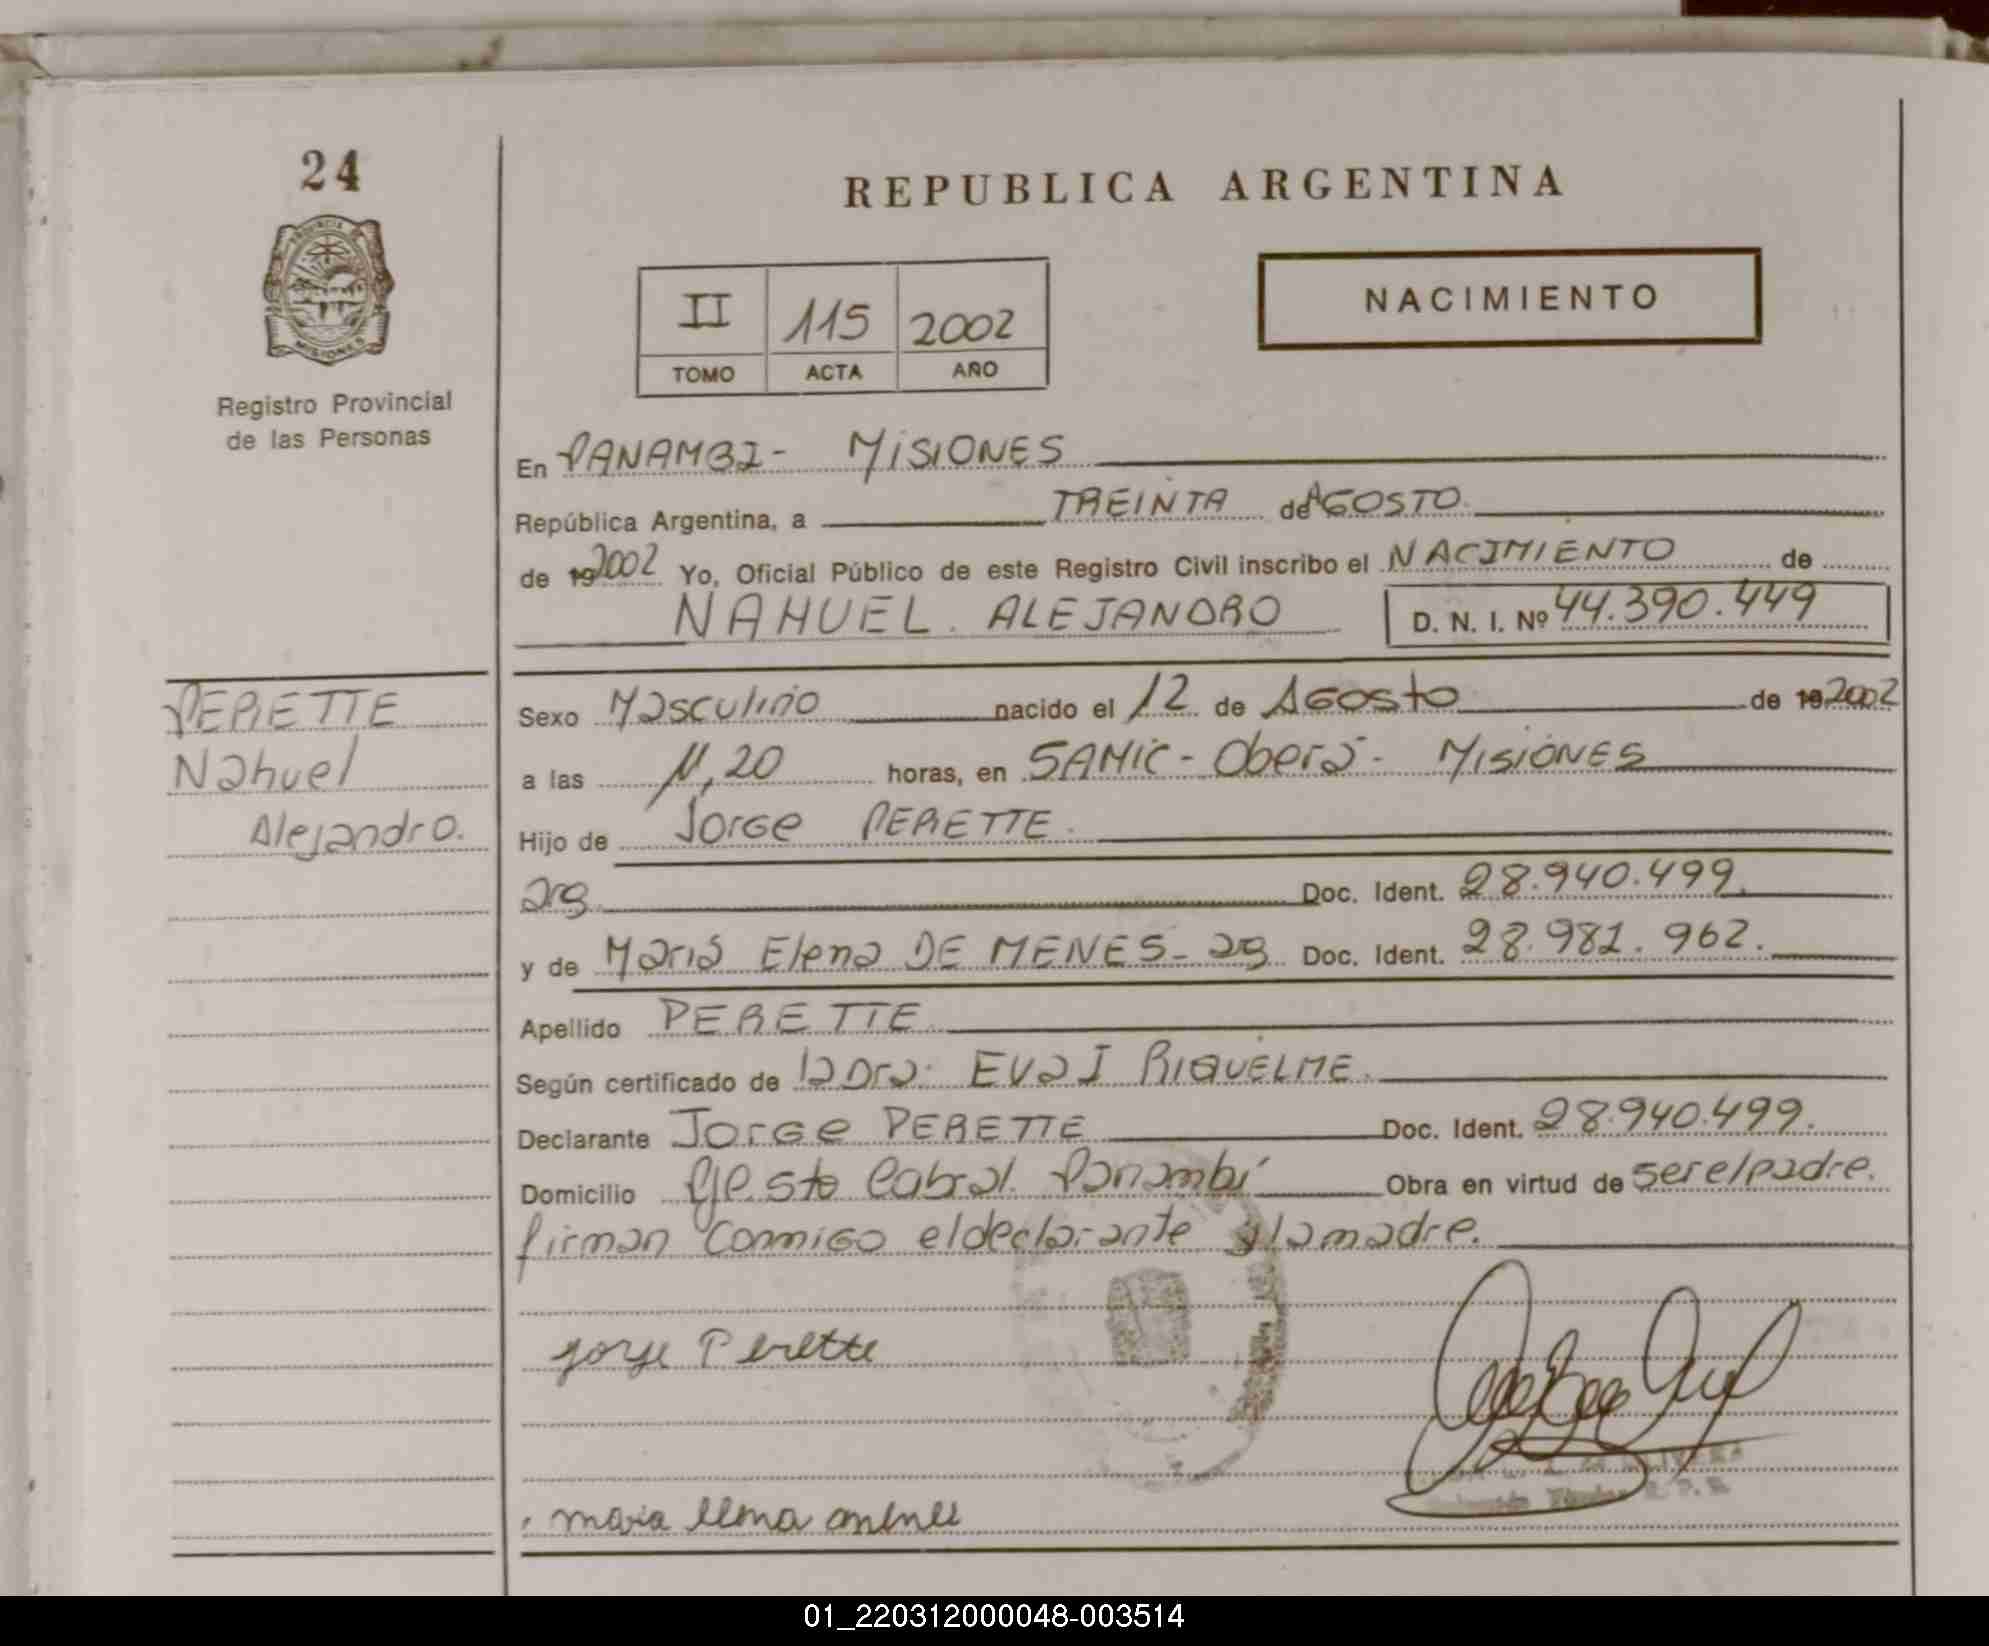 24
REPUBLICA ARGENTINA
PROVINCIA DE
MISIONES
Registro Provincial
de las Personas
II 115 2002
TOMO ACTA AÑO
NACIMIENTO
En PANAMBI - MISIONES
República Argentina, a TREINTA de AGOSTO
de 19 2002 Yo, Oficial Público de este Registro Civil inscribo el NACIMIENTO de
NAHUEL ALEJANDRO D. N. I. Nº 44.390.449
PERETTE
Nahuel
Alejandro.
Sexo Masculino nacido el 12 de AGosto de 19 2002
a las 11,20 horas, en SAMIC - Oberá - MISIONES
Hijo de JorGe PERETTE
arg. Doc. Ident. 28.940.499.
y de María Elena DE MENES - arg Doc. Ident. 28.981.962.
Apellido PERETTE
Según certificado de la Dra. EVa I RIQUELME.
Declarante JorGe PERETTE Doc. Ident. 28.940.499.
Domicilio Pje. Sto Cabral. Panambí Obra en virtud de ser el padre.
firman ConmiGo el declarante y la madre.
Jorge Perette
maria elena menes
01_220312000048-003514